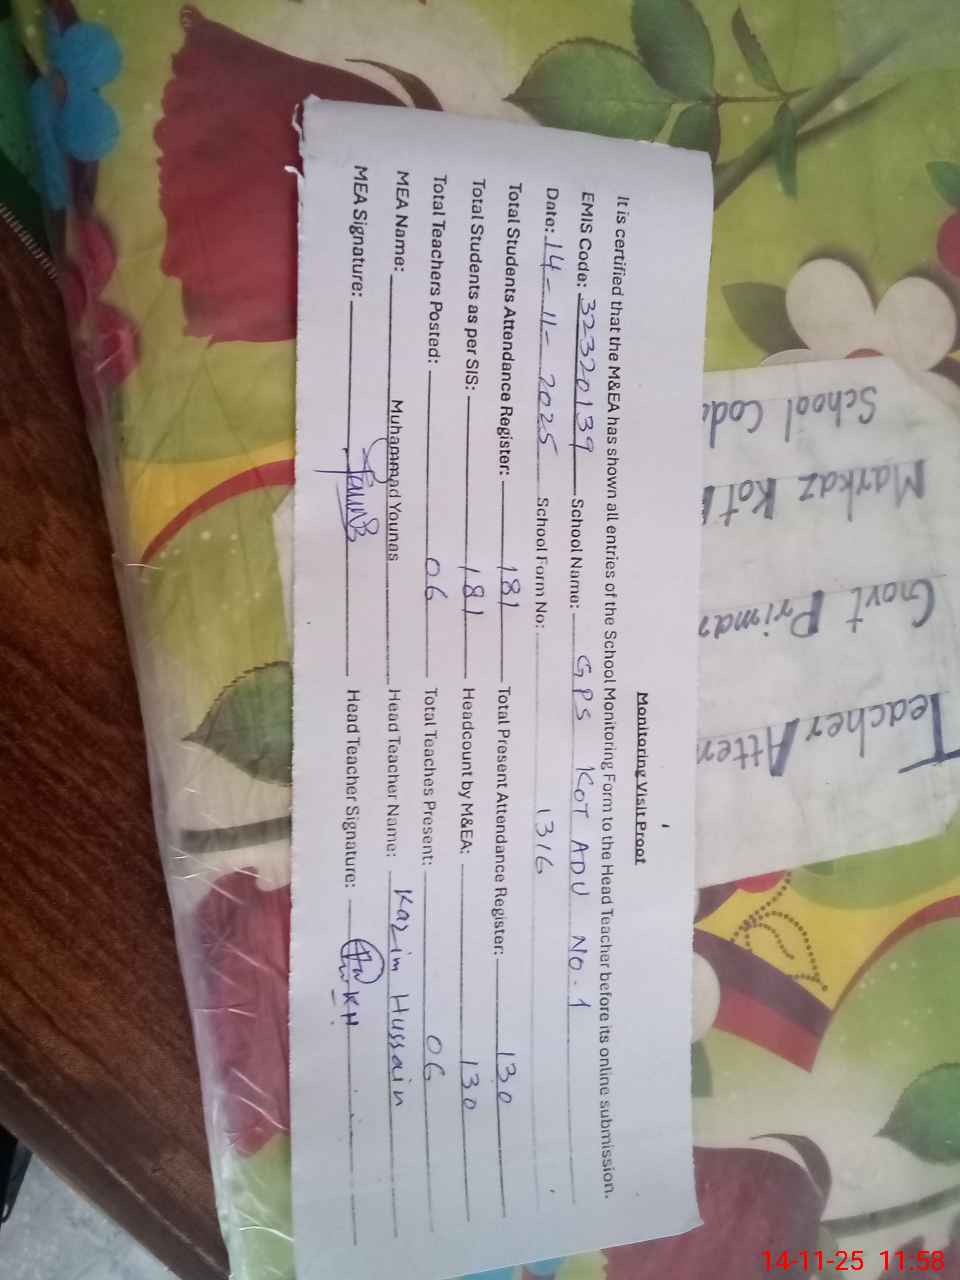 Monitoring Visit Proof
It is certified that the M&EA has shown all entries of the School Monitoring Form to the Head Teacher before its online submission.
EMIS Code: 32320139 School Name: GPS KOT ADU NO. 1
Date: 14-11-2025 School Form No: 1316
Total Students Attendance Register: 181 Total Present Attendance Register: 130
Total Students as per SIS: 181 Headcount by M&EA: 130
Total Teachers Posted: 06 Total Teaches Present: 06
MEA Name: Muhammad Younas Head Teacher Name: Kazim Hussain
MEA Signature: Head Teacher Signature: KH
Teacher Atten
Govt Primar
Markaz Kot
School Code
14-11-25 11:58